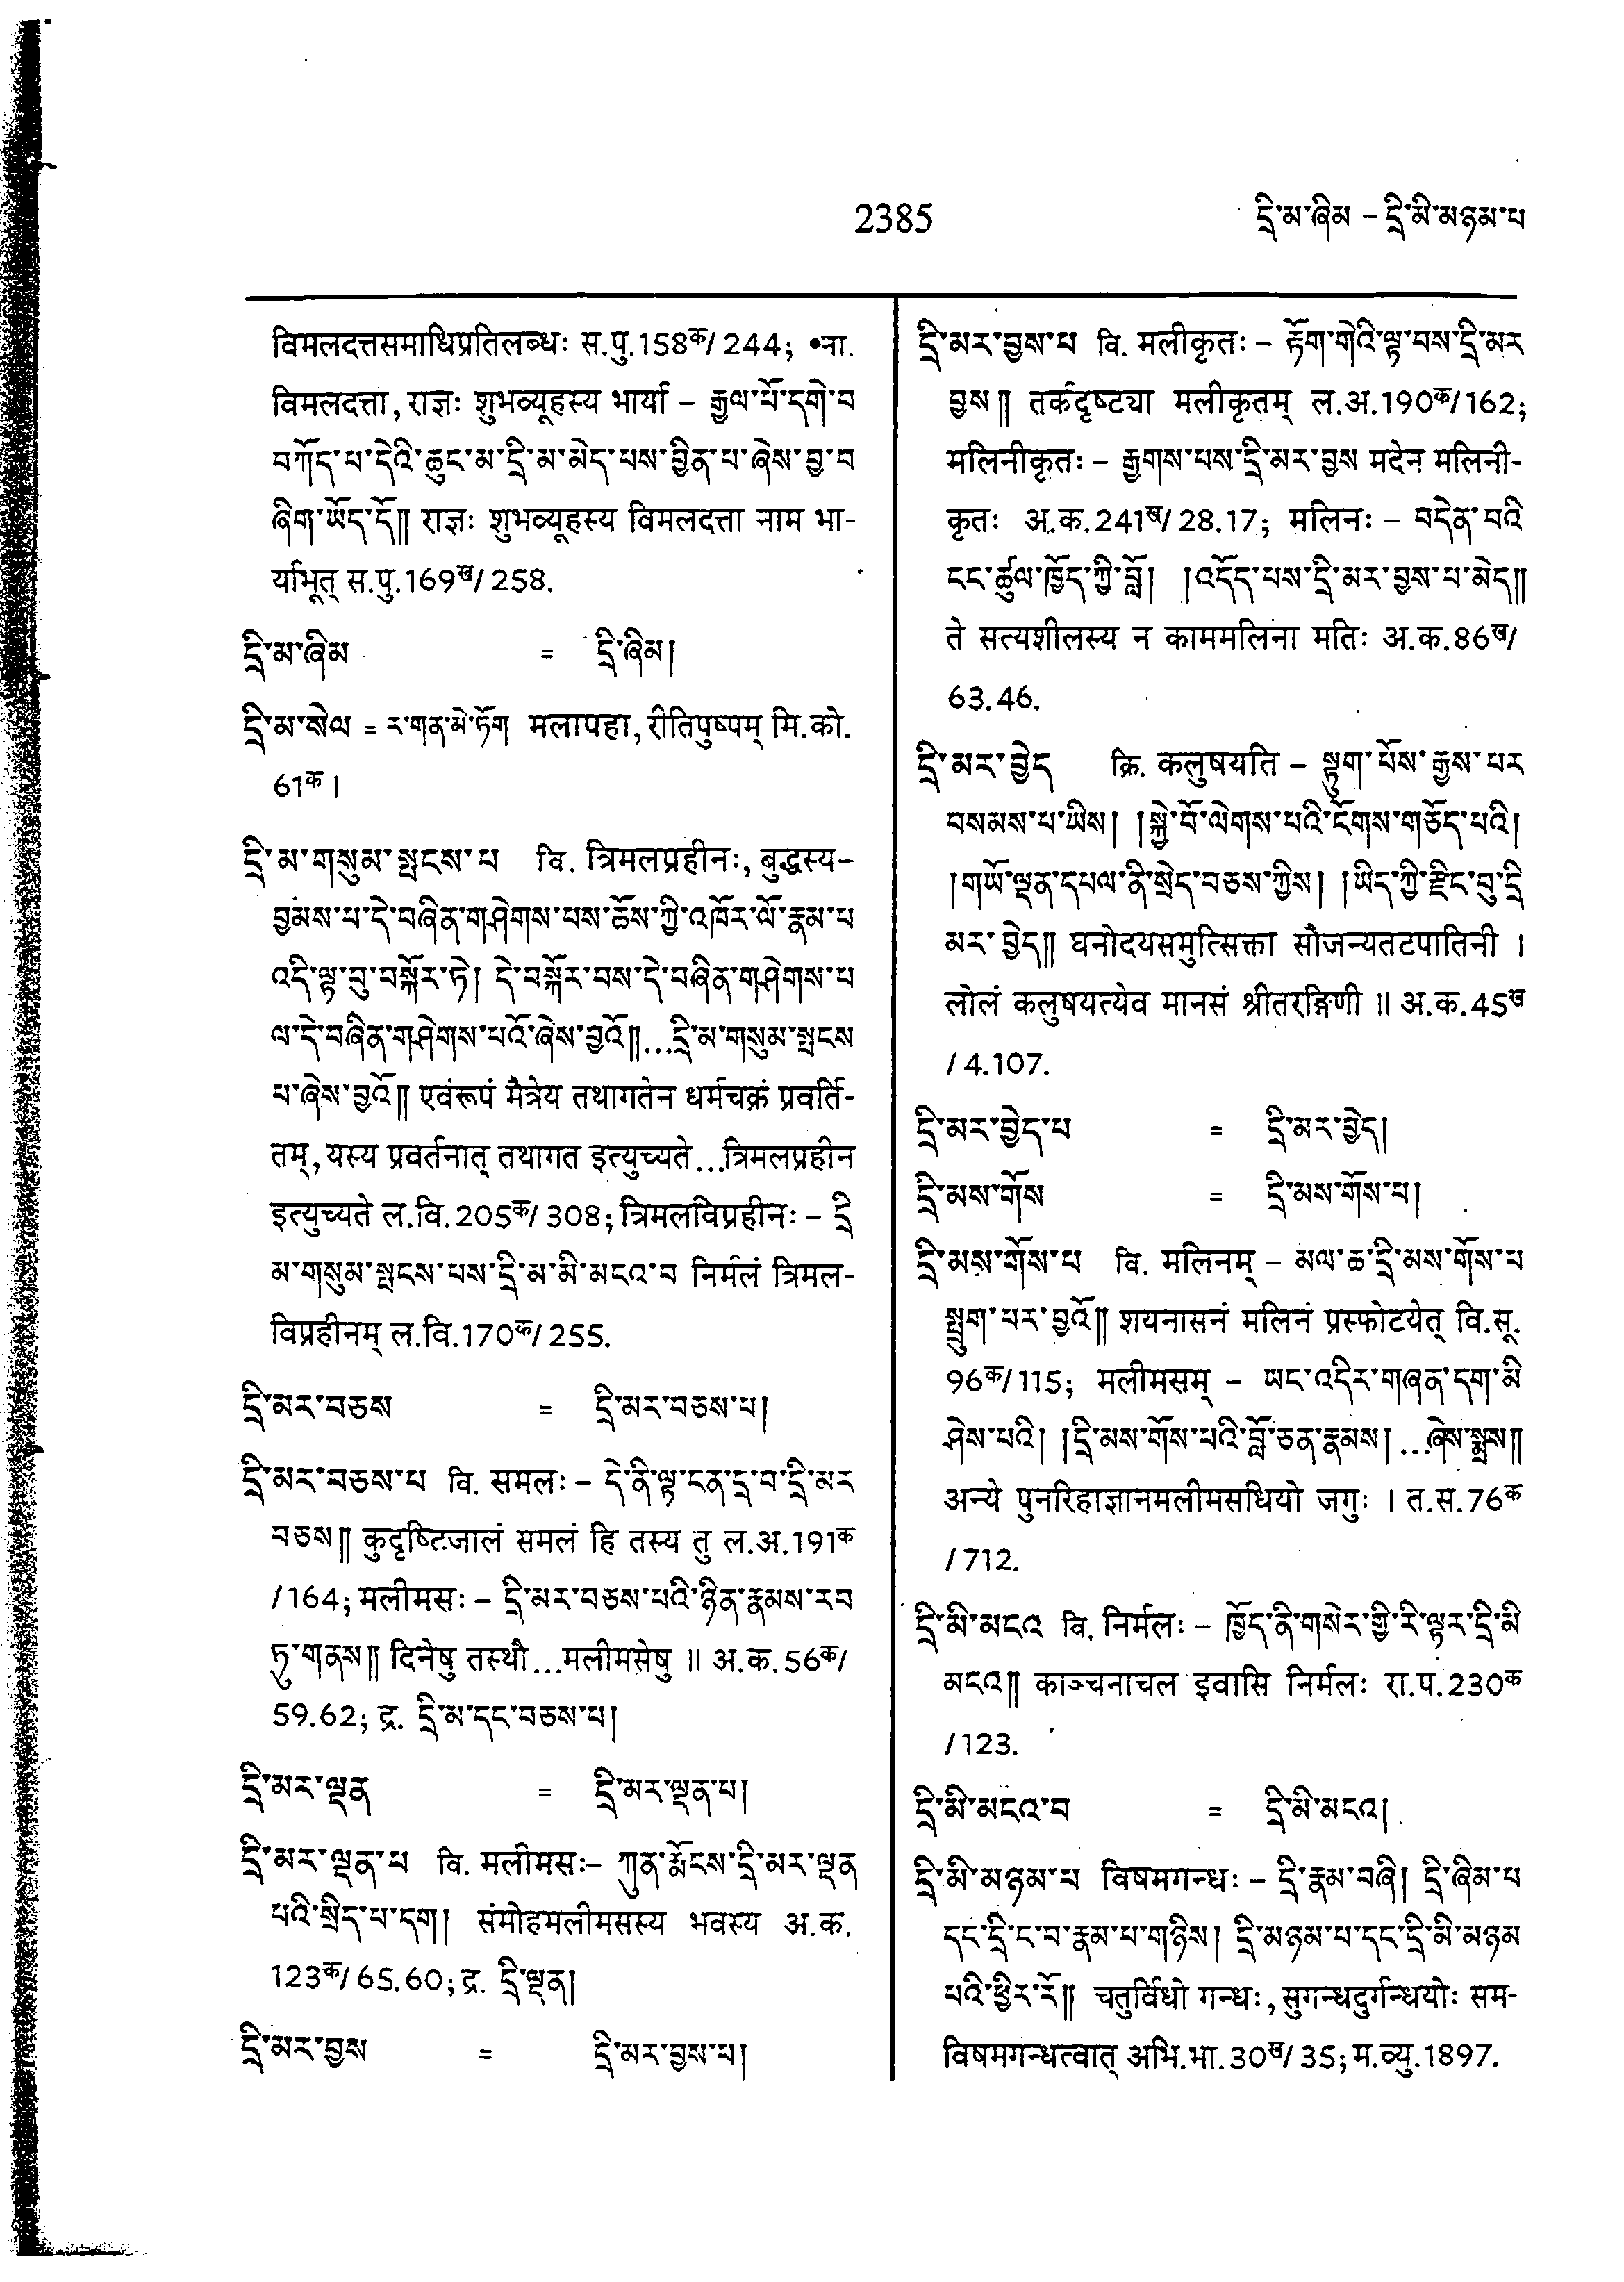 2385
དྲི་མ་ཞིམ – དྲི་མི་མཉམ་པ
विमलदत्तसमाधिप्रतिलब्धः स.पु.158क/244; •ना.
विमलदत्ता, राज्ञः शुभव्यूहस्य भार्या – རྒྱལ་པོ་དགེ་བ
བཀོད་པ་དེའི་ཆུང་མ་དྲི་མ་མེད་པས་བྱིན་པ་ཞེས་བྱ་བ
ཞིག་ཡོད་དོ༎ राज्ञः शुभव्यूहस्य विमलदत्ता नाम भा-
र्याभूत् स.पु.169ख/258.
དྲི་མ་ཞིམ = དྲི་ཞིམ།
དྲི་མ་སེལ = ར་གན་མེ་ཏོག मलापहा, रीतिपुष्पम् मि.को.
61क।
དྲི་མ་གསུམ་སྤངས་པ वि. त्रिमलप्रहीनः, बुद्धस्य–
བྱམས་པ་དེ་བཞིན་གཤེགས་པས་ཆོས་ཀྱི་འཁོར་ལོ་རྣམ་པ
འདི་ལྟ་བུ་བསྐོར་ཏེ། དེ་བསྐོར་བས་དེ་བཞིན་གཤེགས་པ
ལ་དེ་བཞིན་གཤེགས་པའོ་ཞེས་བྱའོ༎...དྲི་མ་གསུམ་སྤངས
པ་ཞེས་བྱའོ༎ एवंरूपं मैत्रेय तथागतेन धर्मचक्रं प्रवर्ति-
तम्, यस्य प्रवर्तनात् तथागत इत्युच्यते...त्रिमलप्रहीन
इत्युच्यते ल.वि.205क/308; त्रिमलविप्रहीनः – དྲི
མ་གསུམ་སྤངས་པས་དྲི་མ་མི་མངའ་བ निर्मलं त्रिमल-
विप्रहीनम् ल.वि.170क/255.
དྲི་མར་བཅས = དྲི་མར་བཅས་པ།
དྲི་མར་བཅས་པ वि. समलः – དེ་ནི་ལྟ་ངན་དྲ་བ་དྲི་མར
བཅས༎ कुदृष्टिजालं समलं हि तस्य तु ल.अ.191क
/164; मलीमसः – དྲི་མར་བཅས་པའི་ཉིན་རྣམས་རབ
ཏུ་གནས༎ दिनेषु तस्थौ...मलीमसेषु ॥ अ.क.56क/
59.62; द्र. དྲི་མ་དང་བཅས་པ།
དྲི་མར་ལྡན = དྲི་མར་ལྡན་པ།
དྲི་མར་ལྡན་པ वि. मलीमसः– ཀུན་རྨོངས་དྲི་མར་ལྡན
པའི་སྲིད་པ་དག། संमोहमलीमसस्य भवस्य अ.क.
123क/65.60; द्र. དྲི་ལྡན།
དྲི་མར་བྱས = དྲི་མར་བྱས་པ།
དྲི་མར་བྱས་པ वि. मलीकृतः – རྟོག་གེའི་ལྟ་བས་དྲི་མར
བྱས༎ तर्कदृष्ट्या मलीकृतम् ल.अ.190क/162;
मलिनीकृतः – རྒྱགས་པས་དྲི་མར་བྱས मदेन मलिनी-
कृतः अ.क.241ख/28.17; मलिनः – བདེན་པའི
ངང་ཚུལ་ཁྱོད་ཀྱི་བློ། །འདོད་པས་དྲི་མར་བྱས་པ་མེད༎
ते सत्यशीलस्य न काममलिना मतिः अ.क.86ख/
63.46.
དྲི་མར་བྱེད क्रि. कलुषयति – སྟུག་པོས་རྒྱས་པར
བསམས་པ་ཡིས། །སྐྱེ་བོ་ལེགས་པའི་ངོགས་གཅོད་པའི།
།གཡོ་ལྡན་དཔལ་ནི་སྲེད་བཅས་ཀྱིས། །ཡིད་ཀྱི་རྫིང་བུ་དྲི
མར་བྱེད༎ घनोदयसमुत्सिक्ता सौजन्यतटपातिनी ।
लोलं कलुषयत्येव मानसं श्रीतरङ्गिणी ॥ अ.क.45ख
/4.107.
དྲི་མར་བྱེད་པ = དྲི་མར་བྱེད།
དྲི་མས་གོས = དྲི་མས་གོས་པ།
དྲི་མས་གོས་པ वि. मलिनम् – མལ་ཆ་དྲི་མས་གོས་པ
སྤྲུག་པར་བྱའོ༎ शयनासनं मलिनं प्रस्फोटयेत् वि.सू.
96क/115; मलीमसम् – ཡང་འདིར་གཞན་དག་མི
ཤེས་པའི། །དྲི་མས་གོས་པའི་བློ་ཅན་རྣམས།...ཞེས་སྨྲས༎
अन्ये पुनरिहाज्ञानमलीमसधियो जगुः । त.स.76क
/712.
དྲི་མི་མངའ वि. निर्मलः – ཁྱོད་ནི་གསེར་གྱི་རི་ལྟར་དྲི་མི
མངའ༎ काञ्चनाचल इवासि निर्मलः रा.प.230क
/123.
དྲི་མི་མངའ་བ = དྲི་མི་མངའ།
དྲི་མི་མཉམ་པ विषमगन्धः – དྲི་རྣམ་བཞི། དྲི་ཞིམ་པ
དང་དྲི་ང་བ་རྣམ་པ་གཉིས། དྲི་མཉམ་པ་དང་དྲི་མི་མཉམ
པའི་ཕྱིར་རོ༎ चतुर्विधो गन्धः, सुगन्धदुर्गन्धयोः सम-
विषमगन्धत्वात् अभि.भा.30ख/35; म.व्यु.1897.